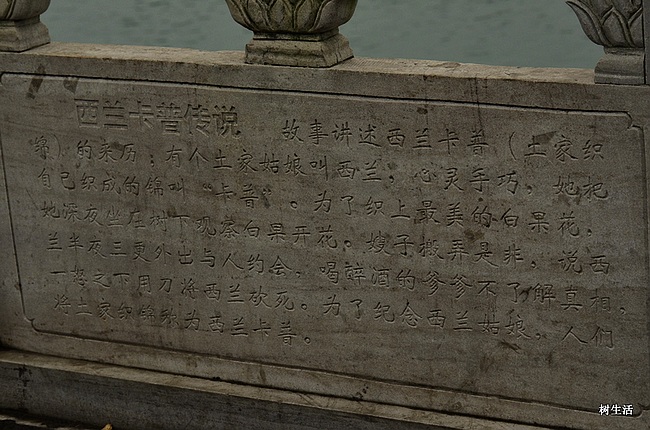 西兰卡普传说 故事讲述西兰卡普（土家织
锦）的来历：有个土家姑娘叫西兰，心灵手巧，她把
自己织成的锦叫“卡普”。为了织上最美的白果花，
她深夜坐在树下观察白果开花。嫂子搬弄是非，说西
兰半夜三更外出与人约会，喝醉酒的爹爹不了解真相，
一怒之下用刀将西兰砍死。为了纪念西兰姑娘，人们
将土家织锦称为西兰卡普。
树生活